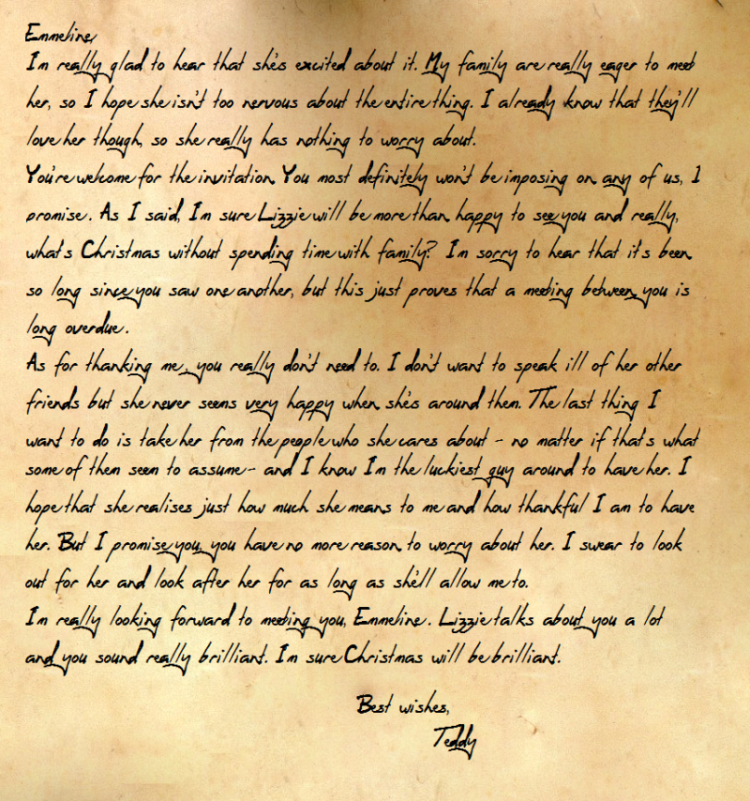 Emmeline,
I'm really glad to hear that she's excited about it. My family are really eager to meet
her, so I hope she isn't too nervous about the entire thing. I already know that they'll
love her though, so she really has nothing to worry about.
You're welcome for the invitation. You most definitely won't be imposing on any of us, I
promise. As I said, I'm sure Lizzie will be more than happy to see you and really,
what's Christmas without spending time with family? I'm sorry to hear that it's been
so long since you saw one another, but this just proves that a meeting between you is
long overdue.
As for thanking me, you really don't need to. I don't want to speak ill of her other
friends but she never seems very happy when she's around them. The last thing I
want to do is take her from the people who she cares about - no matter if that's what
some of them seem to assume - and I know I'm the luckiest guy around to have her. I
hope that she realises just how much she means to me and how thankful I am to have
her. But I promise you, you have no more reason to worry about her. I swear to look
out for her and look after her for as long as she'll allow me to.
I'm really looking forward to meeting you, Emmeline. Lizzie talks about you a lot
and you sound really brilliant. I'm sure Christmas will be brilliant.
Best wishes,
Teddy